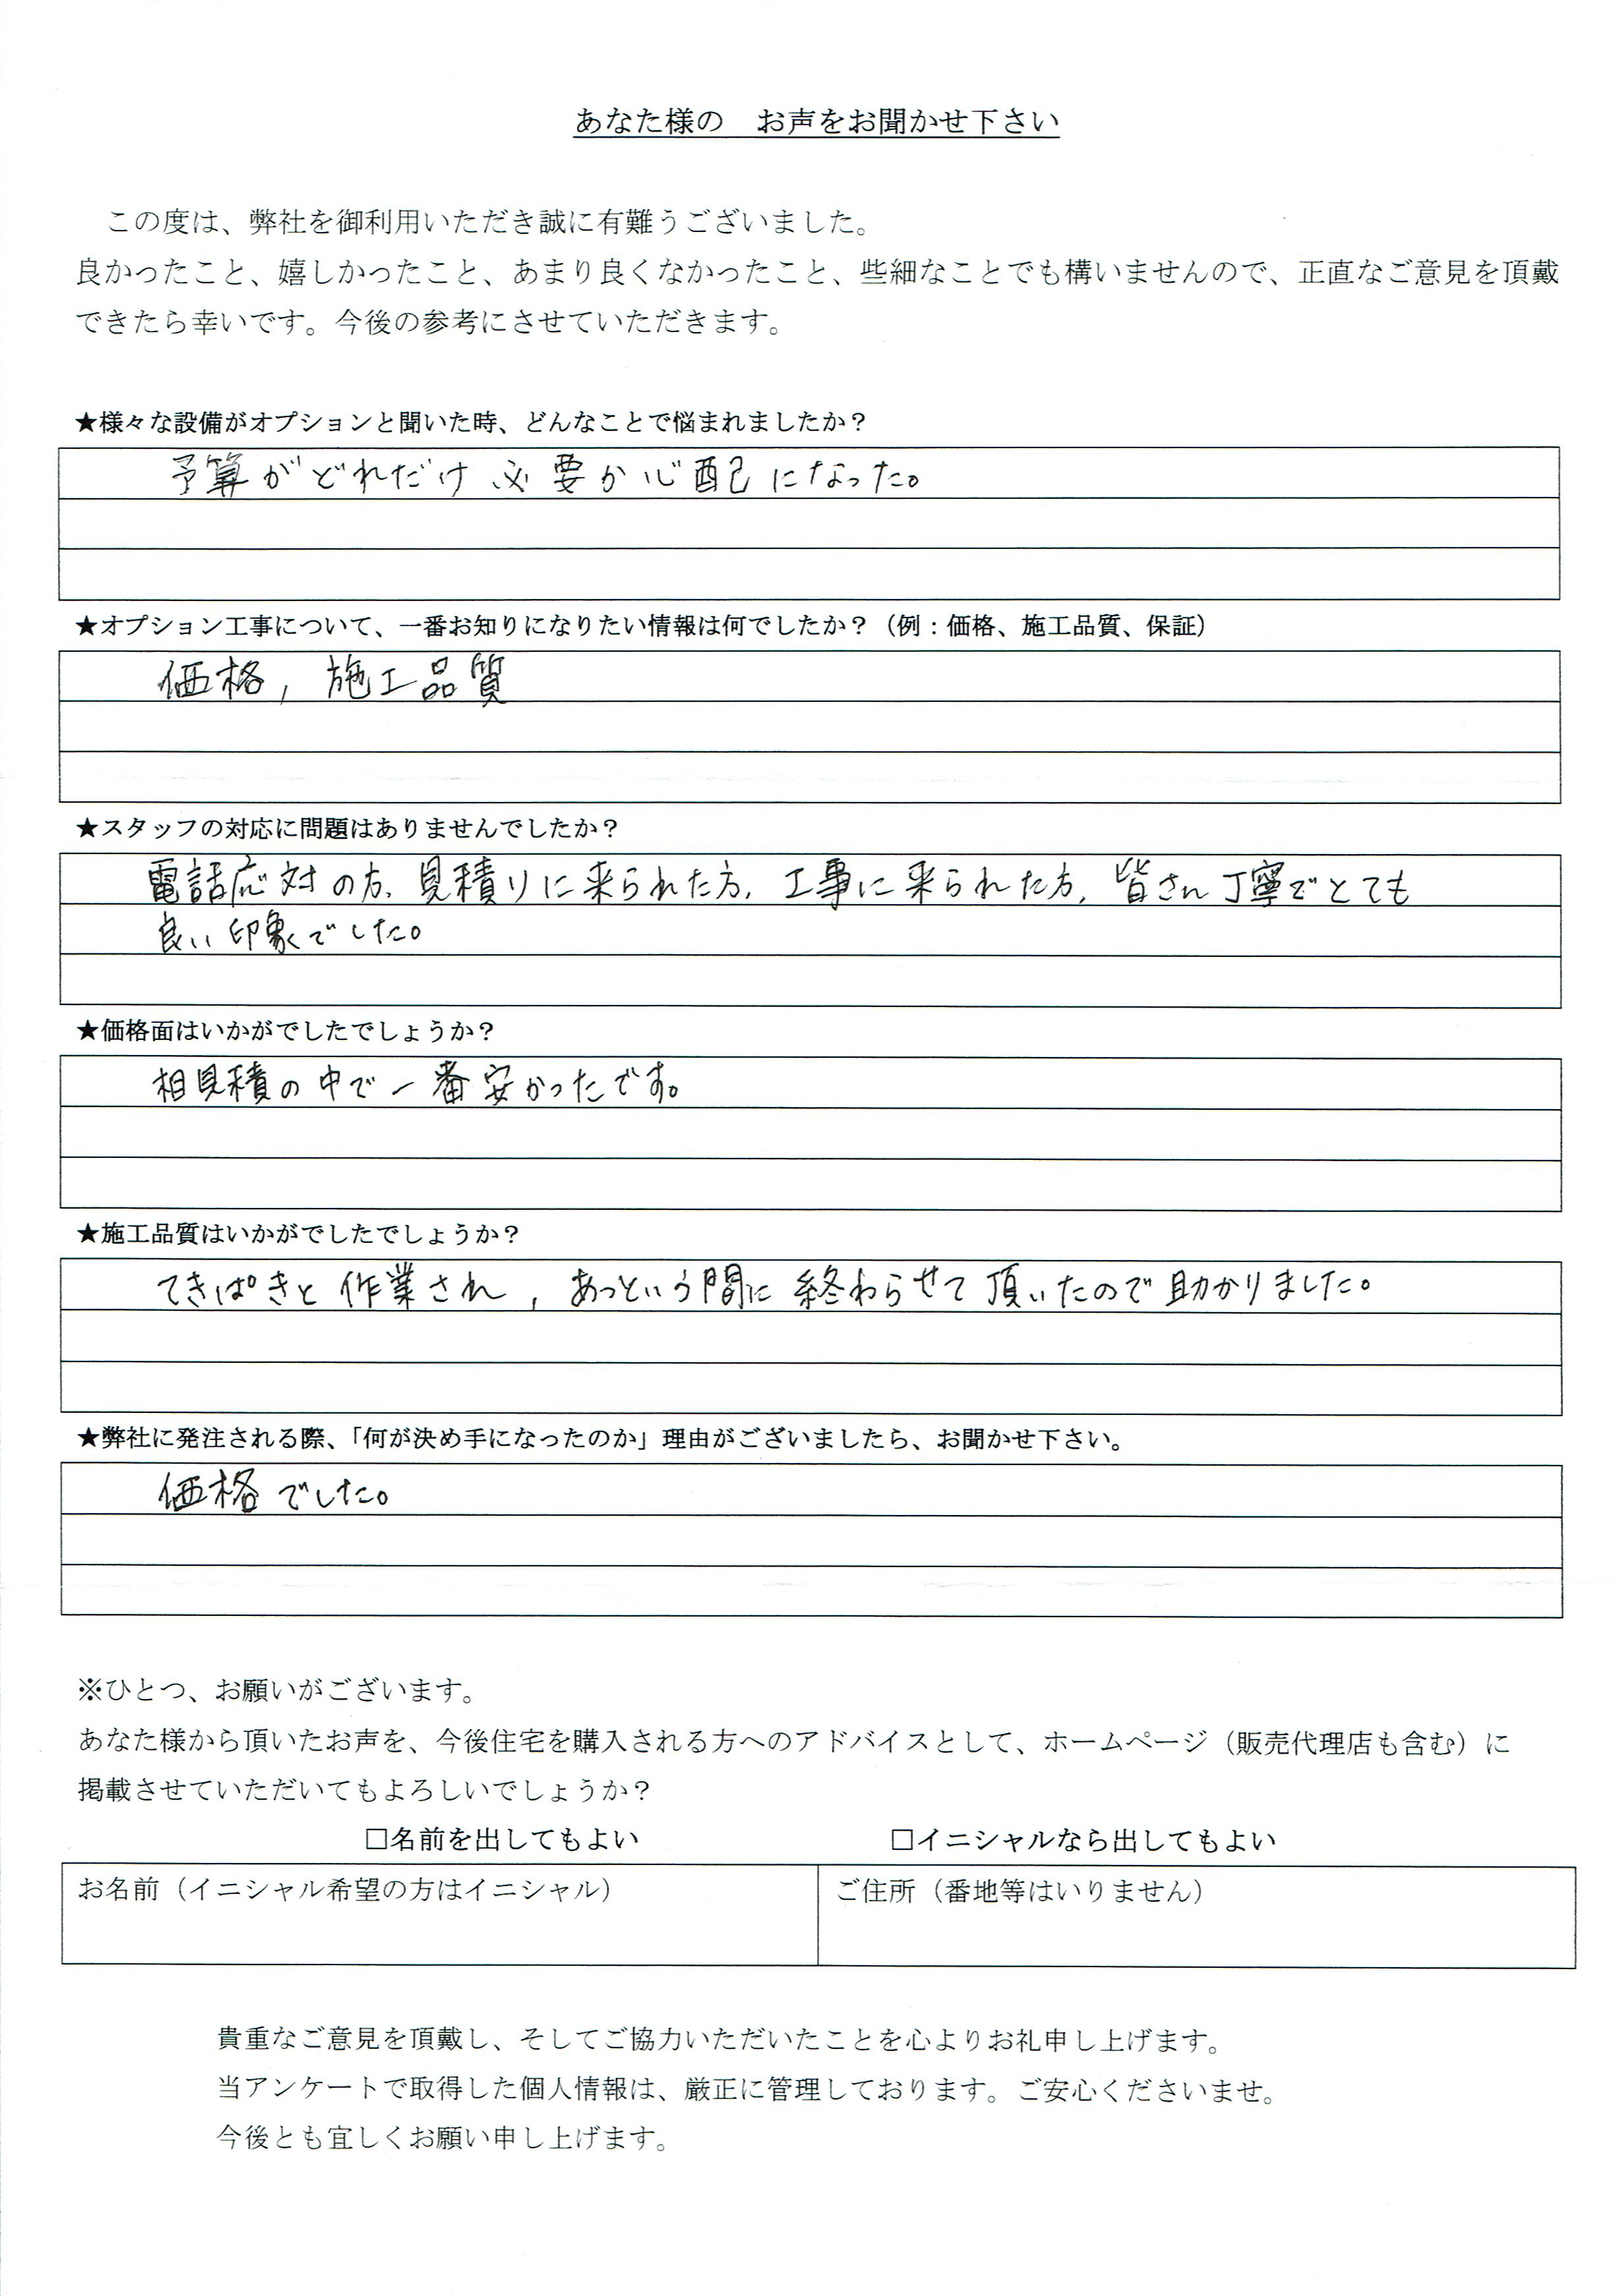 あなた様の　お声をお聞かせ下さい
この度は、弊社を御利用いただき誠に有難うございました。
良かったこと、嬉しかったこと、あまり良くなかったこと、些細なことでも構いませんので、正直なご意見を頂戴
できたら幸いです。今後の参考にさせていただきます。
★様々な設備がオプションと聞いた時、どんなことで悩まれましたか？
予算がどれだけ必要か心配になった。
★オプション工事について、一番お知りになりたい情報は何でしたか？（例：価格、施工品質、保証）
価格, 施工品質
★スタッフの対応に問題はありませんでしたか？
電話応対の方, 見積りに来られた方, 工事に来られた方, 皆さん丁寧でとても
良い印象でした。
★価格面はいかがでしたでしょうか？
相見積の中で一番安かったです。
★施工品質はいかがでしたでしょうか？
てきぱきと作業され, あっという間に終わらせて頂いたので助かりました。
★弊社に発注される際、「何が決め手になったのか」理由がございましたら、お聞かせ下さい。
価格でした。
※ひとつ、お願いがございます。
あなた様から頂いたお声を、今後住宅を購入される方へのアドバイスとして、ホームページ（販売代理店も含む）に
掲載させていただいてもよろしいでしょうか？
□名前を出してもよい　□イニシャルなら出してもよい
お名前（イニシャル希望の方はイニシャル）　ご住所（番地等はいりません）
貴重なご意見を頂戴し、そしてご協力いただいたことを心よりお礼申し上げます。
当アンケートで取得した個人情報は、厳正に管理しております。ご安心くださいませ。
今後とも宜しくお願い申し上げます。